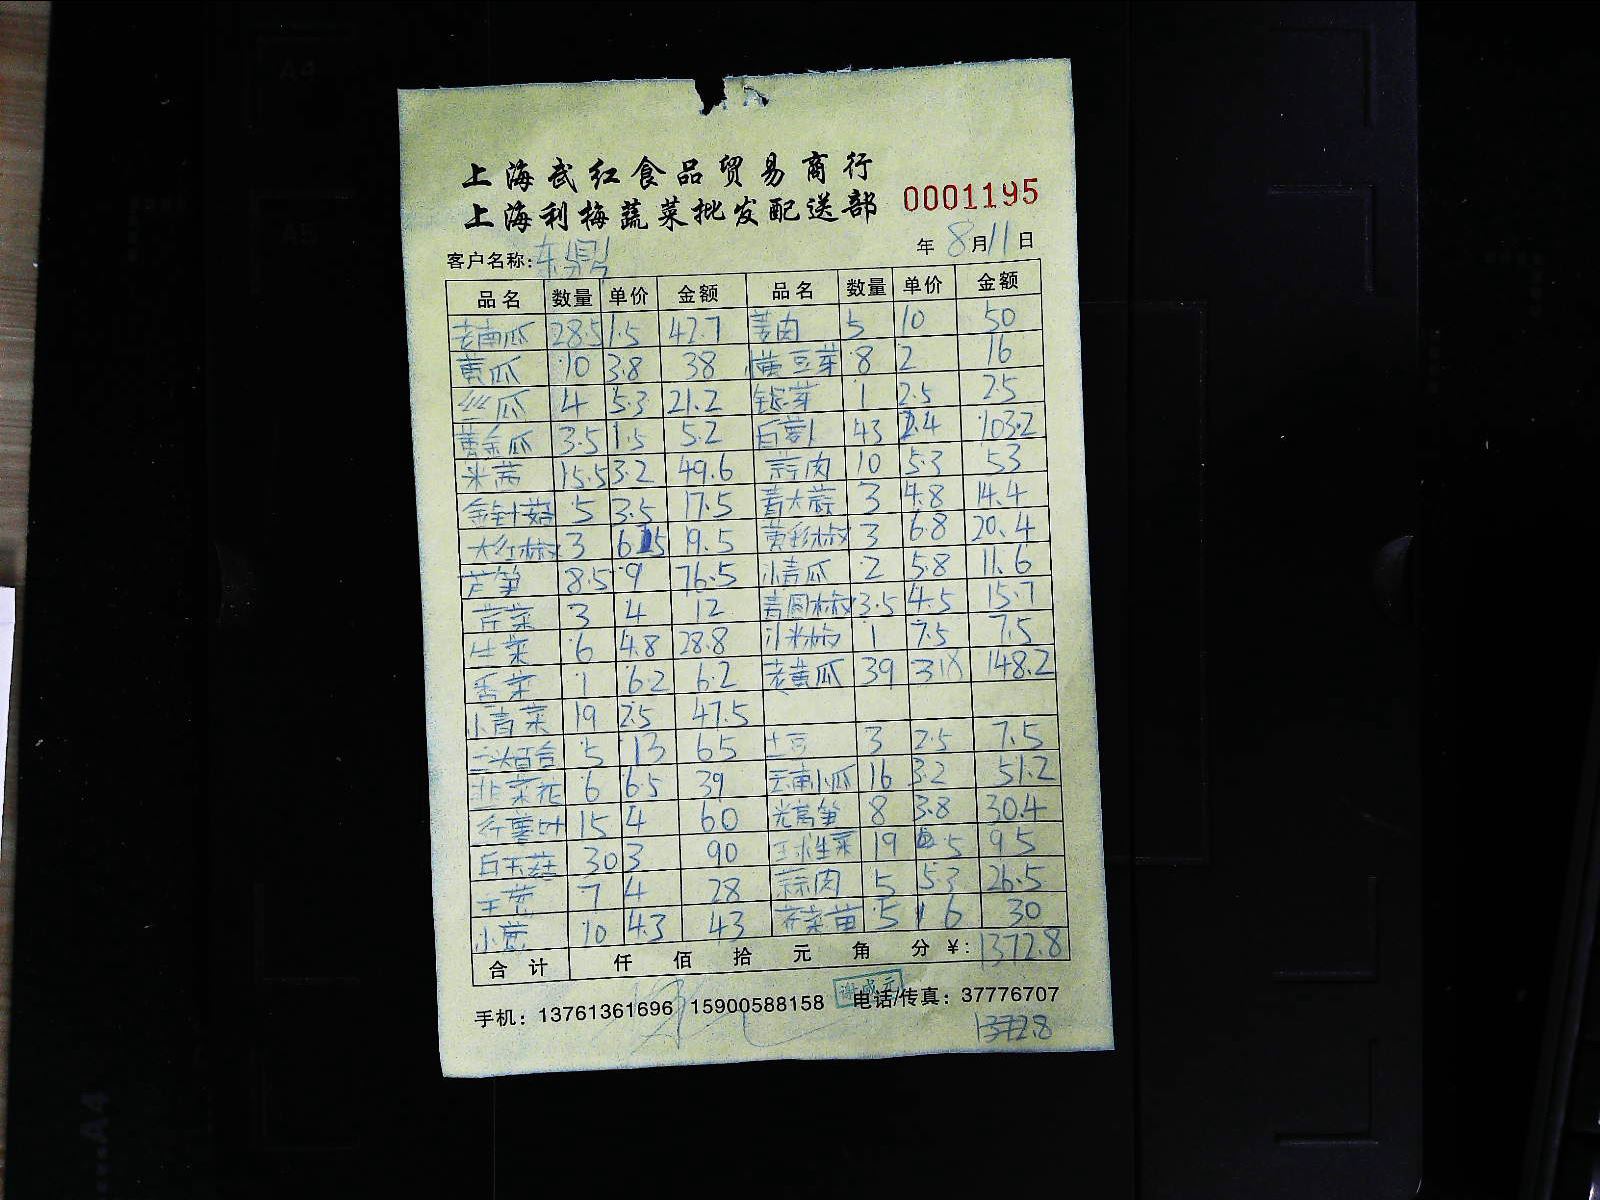 上海武红食品贸易商行
上海利梅蔬菜批发配送部 0001195
客户名称: 东鼎 年 8月11日
品名 数量 单价 金额 品名 数量 单价 金额
老南瓜 28.5 1.5 42.7 姜肉 5 10 50
黄瓜 10 3.8 38 黄豆芽 8 2 16
丝瓜 4 5.3 21.2 银芽 1 2.5 2.5
黄金瓜 3.5 1.5 5.2 白萝卜 43 2.4 103.2
米茜 15.5 3.2 49.6 蒜肉 10 5.3 53
金针菇 5 3.5 17.5 青大蒜 3 4.8 14.4
大红椒 3 6.5 19.5 黄彩椒 3 6.8 20.4
芦笋 8.5 9 76.5 小青瓜 2 5.8 11.6
芹菜 3 4 12 青圆椒 3.5 4.5 15.7
生菜 6 4.8 28.8 小米椒 1 7.5 7.5
香菜 1 6.2 6.2 老黄瓜 39 3.8 148.2
小青菜 19 2.5 47.5
百合 5 13 65 土豆 3 2.5 7.5
韭菜花 6 6.5 39 云南小瓜 16 3.2 51.2
薯叶 15 4 60 光莴笋 8 3.8 30.4
白玉菇 30 3 90 玉球生菜 19 5 95
7 4 28 蒜肉 5 5.3 26.5
小葱 10 4.3 43 荠菜苗 5 6 30
合计 仟 佰 拾 元 角 分 ¥: 1372.8
手机: 13761361696 15900588158 电话/传真: 37776707
1372.8